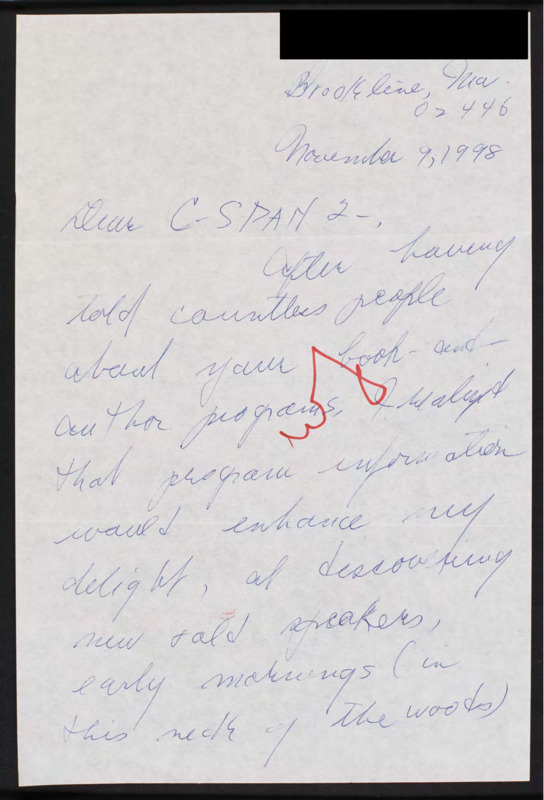 Brookline, Ma.
02446
November 9, 1998
Dear C-SPAN 2-,
After having
told countless people
about your book-and-
author programs, I realized
that program information
would enhance my
delight, at discovering
new & old speakers,
early mornings (in
this neck of the woods)